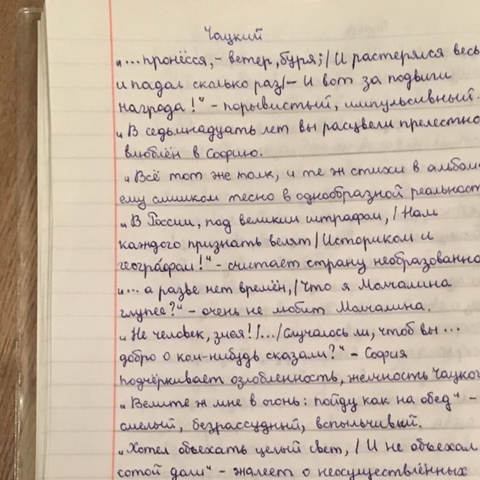 Чацкий
"... пронёсся, - ветер, буря; / И растерялся весь
и падал сколько раз / - И вот за подвиги
награда!" - порывистый, импульсивный.
"В седьмнадцать лет вы расцвели прелестно
влюблён в Софию.
"Всё тот же толк, и те ж стихи в альбом
ему слишком тесно в однообразной реальност
"В России, под великим штрафом, / Нам
каждого признать велят / Историком и
геогрáфом!" - считает страну необразованно
"... а разве нет времён, / Что я Молчалина
глупее?" - очень не любит Молчалина.
"Не человек, змея! /.../ Случалось ли, чтоб вы ...
добро о ком-нибудь сказали?" - София
подчёркивает озлобленность, желчность Чацког
"Велите ж мне в огонь: пойду как на обед" -
смелый, безрассудный, вспыльчивый.
"Хотел объехать целый свет, / И не объехал
сотой доли" - жалеет о неосуществлённых